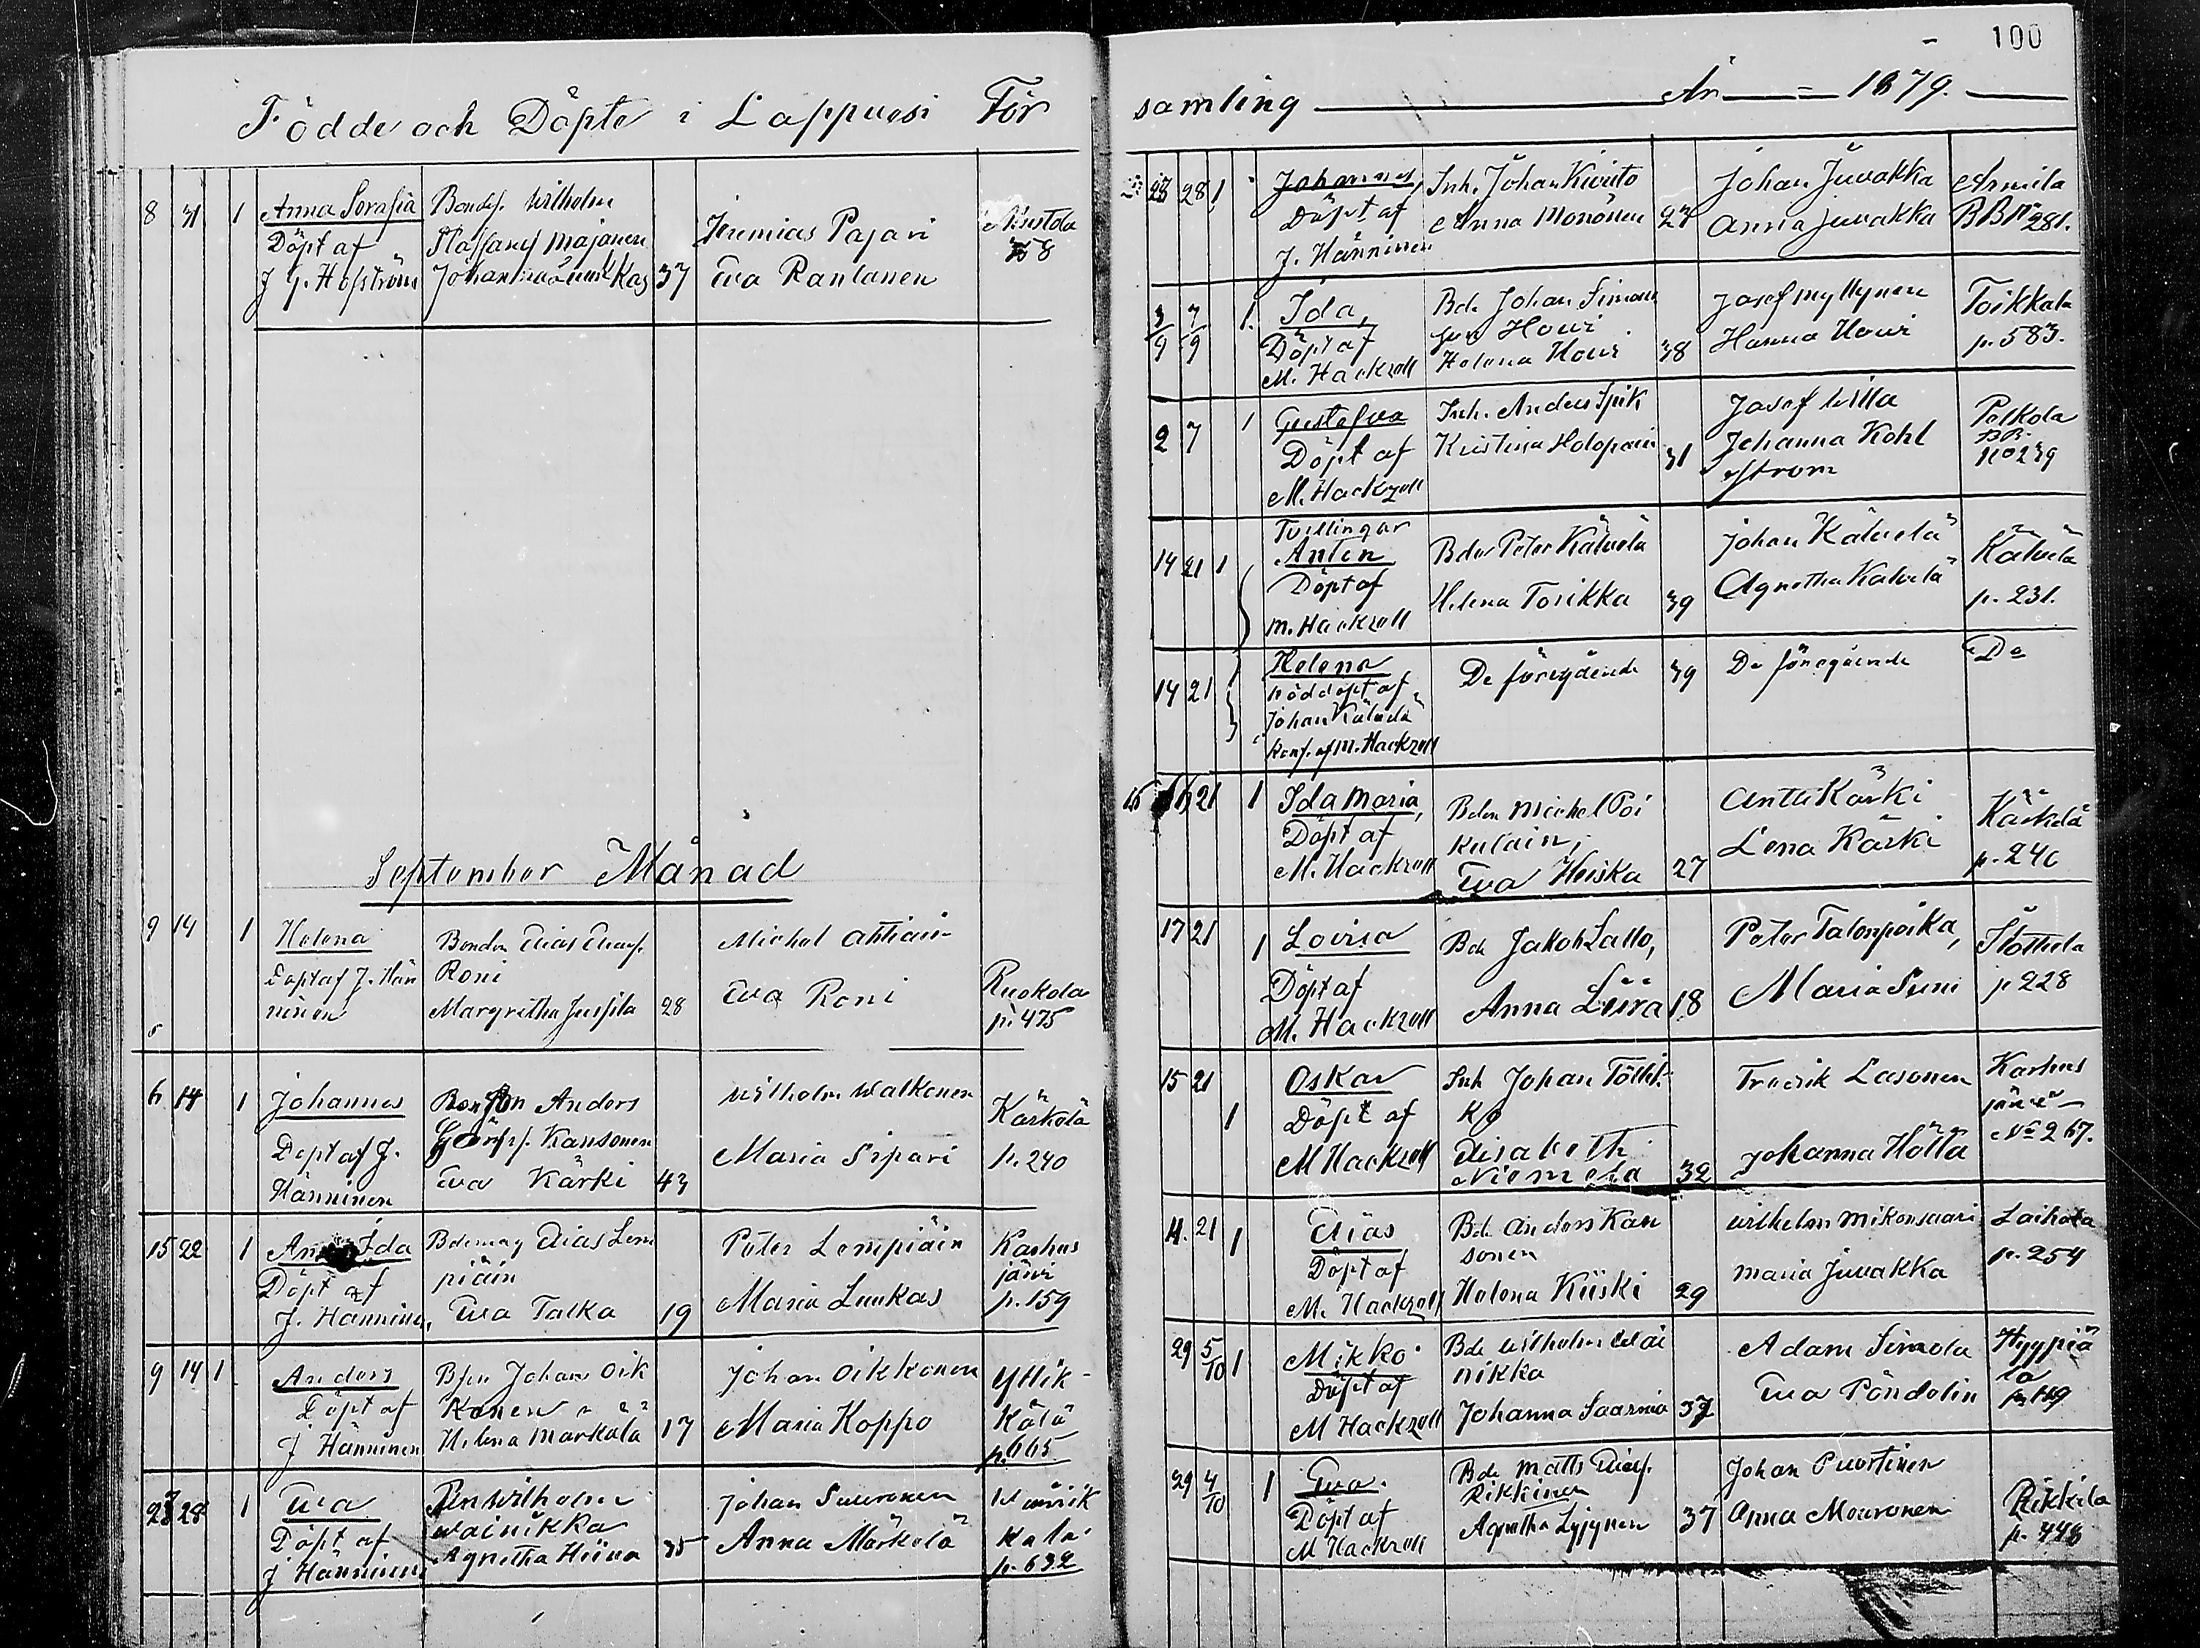 Födde och Döpte i Lappvesi För
8 31 1 Anna Sorafia Bondes. Wilhelm
Döpt af Staffansf Majanen Jeremias Pajari
J G. Hofström Johanna 37 Eva Rantanen 8
September Månad
9 14 1 Helena Bonden Elias Eliasf. Michel Ahtiain
Döpt af J. Hän Roni Ruokola
ninen Margretha Jussila 28 Eva Roni p. 475
6 14 1 Johannes Anders Wilhelm Walkonen Kärkelä
Döpt af J. Kansonen Maria Sipari p. 240
Hänninen Eva Kärki 43
15 22 1 Anna Ida Elias Lem Peter Lempiäin Karhus
Döpt af piäin järvi
J. Hänninen, Eva Talka 19 Maria Luukas p. 159
9 14 1 Anders Bsn Johan Oik Johan Oikkonen Yllik-
Döpt af konen kälä
J Hänninen Helena Markala 17 Maria Koppo p. 665
28 1 Eva Wilhelm Johan Suuronen
Döpt af Wainikka kala
J Hänninen Agnetha Hiina 35 Anna Märkelä p. 632
100
samling År 1879.
23 28 1 Johannes, Inh. Johan Kiviito Johan Juvakka Armila
Döpt af Anna Monönen 27 Anna Juvakka BB No 281.
J. Hänninen
3/9 7/9 1. Ida, Bde Johan Simons Josef Myllynen Toikkala
Döpt af son Houi Hanna Houi p. 583.
M. Hackzell Helena Houi 38
2 7 1 Gustafva Inh. Anders Spik Josef Willa Pelkola
Döpt af Kristina Holopain 31 Johanna Kohl BB.
M. Hackzell strom No 239
Tvillingar
14 21 1 Anton Bden Peter Kälvelä Johan Kälvelä Kälvelä
Döpt af Helena Torikka 39 Agnetha Kälvelä p. 231.
M. Hackzell
14 21 Helena De föregående 39 De föregående Do
nöddöpt af
Johan Kälvelä
Konf. af M. Hackzell
16 21 1 Ida Maria, Bden Michel Poi Antti Kärki Kärkelä
Döpt af kulain, Lena Kärki p. 240
M. Hackzell Eva Heiska 27
17 21 1 Lovisa Bde Jakob Lallo, Peter Talonpoika,
Döpt af Anna Liira 18 Maria Suni p 228
M. Hackzell
15 21 Oskar Inh Johan Töllik- Fredrik Lasonen Karhus
1 Döpt af kö järvi
M Hackzell Elisabeth Johanna Höltä No 267.
Niemelä 32
4. 21 1 Elias Bde Anders Kan Wilhelm Mikonsaari Laihola
Döpt af sonen p. 254
M. Hackzell Helena Kiiski 29 Maria Juvakka
29 5/10 1 Mikko Bde Wilhelm Wäi Adam Simola Hyypiä
Döpt af nikka lä
M Hackzell Johanna Saarnia 37 Eva Pöndelin p. 119
29 4/10 1 Eva. Bde Matts Eliasf. Johan Puustinen
Döpt af Rikkinen Rikkilä
M Hackzell Agnetha Lyjynen 37 Anna Mouronen p. 448